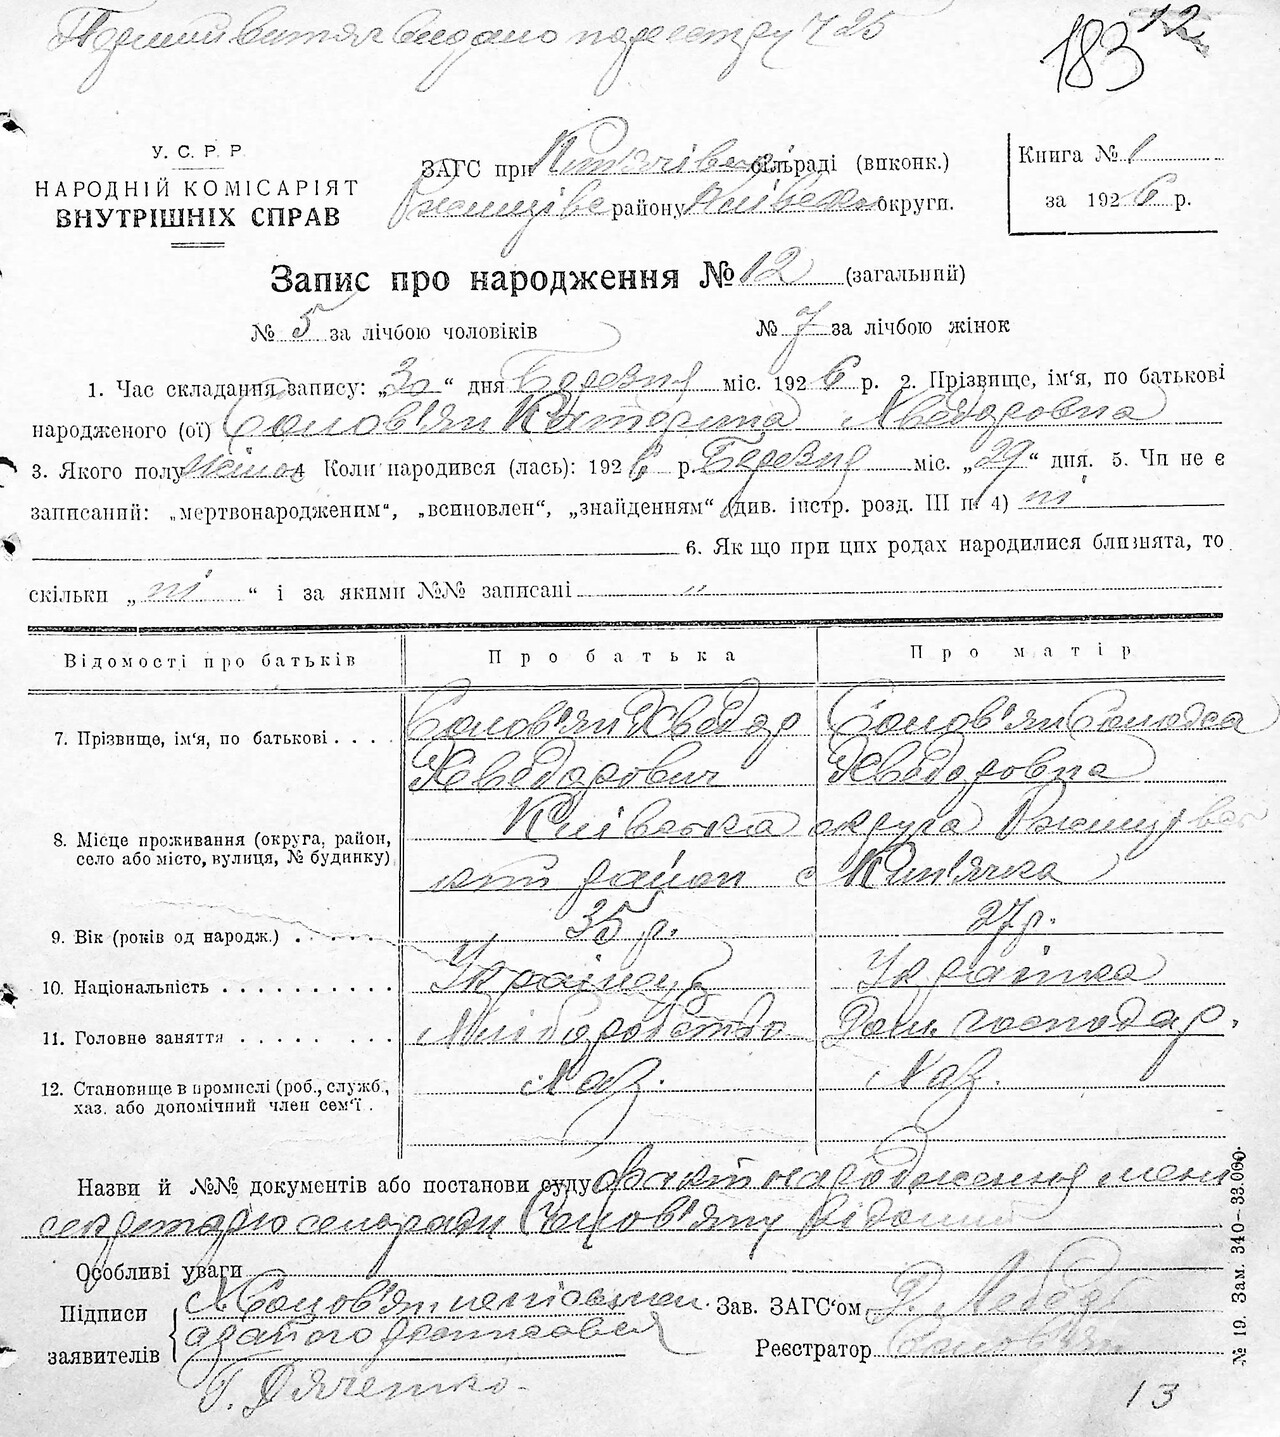 Перший витяг видано по реєстру Ч 25
183 12
У. С. Р. Р.
НАРОДНІЙ КОМІСАРІЯТ
ВНУТРІШНІХ СПРАВ
ЗАГС при сільраді (виконк.)
району округи.
Книга № 1
за 1926 р.
Запис про народження № 12 (загальний)
№ 5 за лічбою чоловіків № 7 за лічбою жінок
1. Час складання запису: „30“ дня Березня міс. 1926 р. 2. Прізвище, ім'я, по батькові
народженого (ої) Солов'ян Катерина Хведоровна
3. Якого полу жіноч 4 Коли народився (лась): 1926 р. Березня міс. „29“ дня. 5. Чи не є
записаний: „мертвонародженим“, „всиновлен“, „знайденням“ (див. інстр. розд. III п. 4) ні
6. Як що при цих родах народилися близнята, то
скільки „ні“ і за якими №№ записані „
Відомості про батьків Про батька Про матір
7. Прізвище, ім'я, по батькові . . . . Солов'ян Хведор Солов'ян Соломха
Хведорович Хведоровна
8. Місце проживання (округа, район, село або місто, вулиця, № будинку) Київська округа Ржищівсь
кий район с Кип'ячка
9. Вік (років од народж.) . . . . . 35 р. 27 р.
10. Національність . . . . . . . . . . Українець Українка
11. Головне заняття . . . . . . . . Хліборобство Дом. господар.
12. Становище в промислі (роб., служб., хаз. або допомічний член сем'ї . Хаз. Хаз.
Назви й №№ документів або постанови суду факт народження мені
секретарю сельради Солов'яну відомий
Особливі уваги
Підписи заявителів Х Солов'ян неписьмен.
а за його росписовся
Г. Дяченко
Зав. ЗАГС'ом Лебедь
Реєстратор Солов'ян
№ 19. Зам. 340–33.000.
13